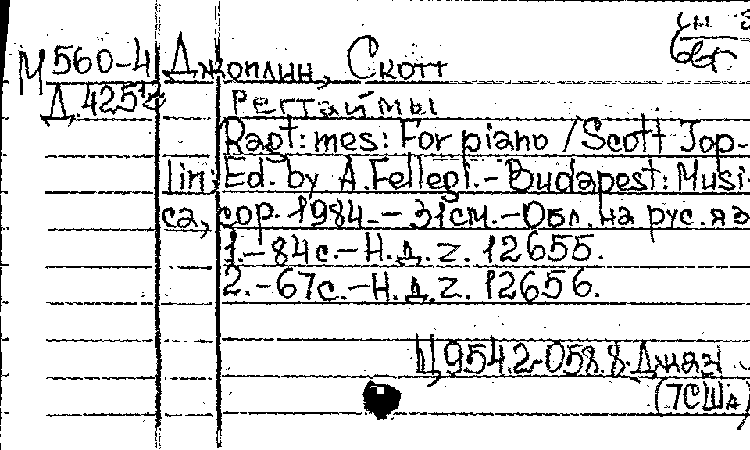 М560-4 Джоплин, Скотт
Д.425
Регтаймы
Ragt:mes: For piano / Scott Jop-
lin; Ed. by A.Fellegi.-Budapest: Musi-
ca, cop. 1984.-31см.-Обл. на рус. яз
1.-84с.-Н.д. Z. 12655.
2.-67с.-Н.д. Z. 12656.
Ц9542-058.8 Джаз
(7США)